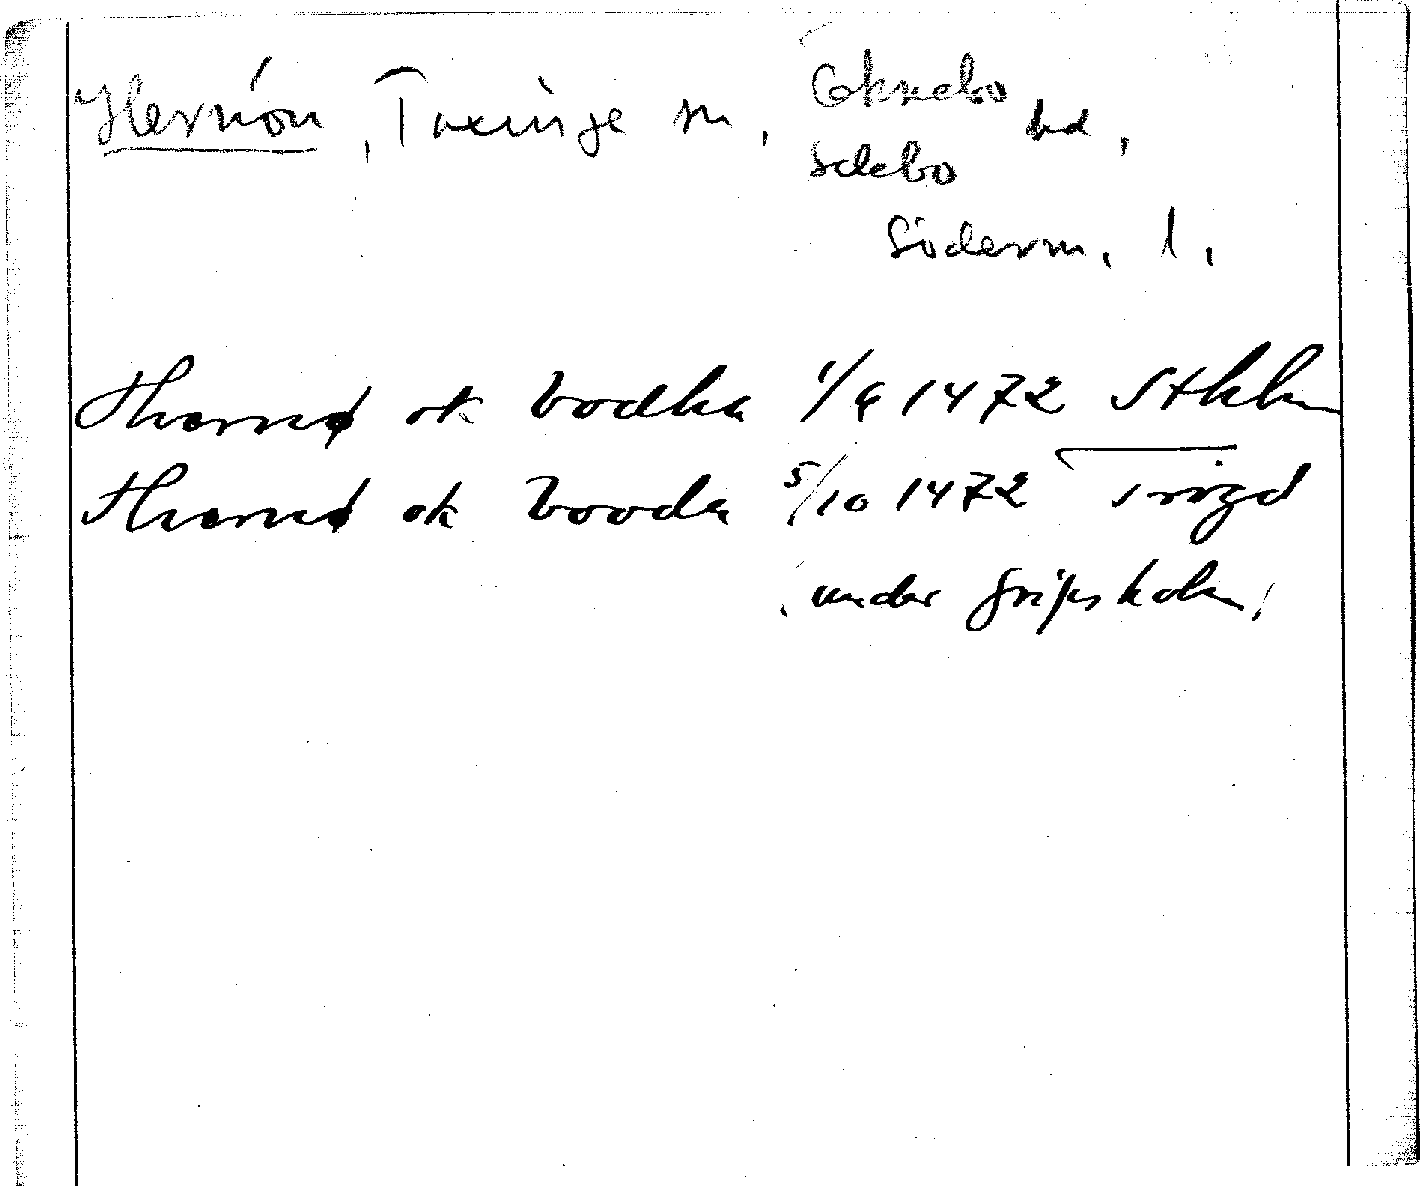 Hernön, Taxinge sn, Öknebo
Selebo hd,
Söderm. l.
Hernø ok Bodha 1/9 1472 Sthlm
Hernø ok Booda 5/10 1472
under Gripsholm,